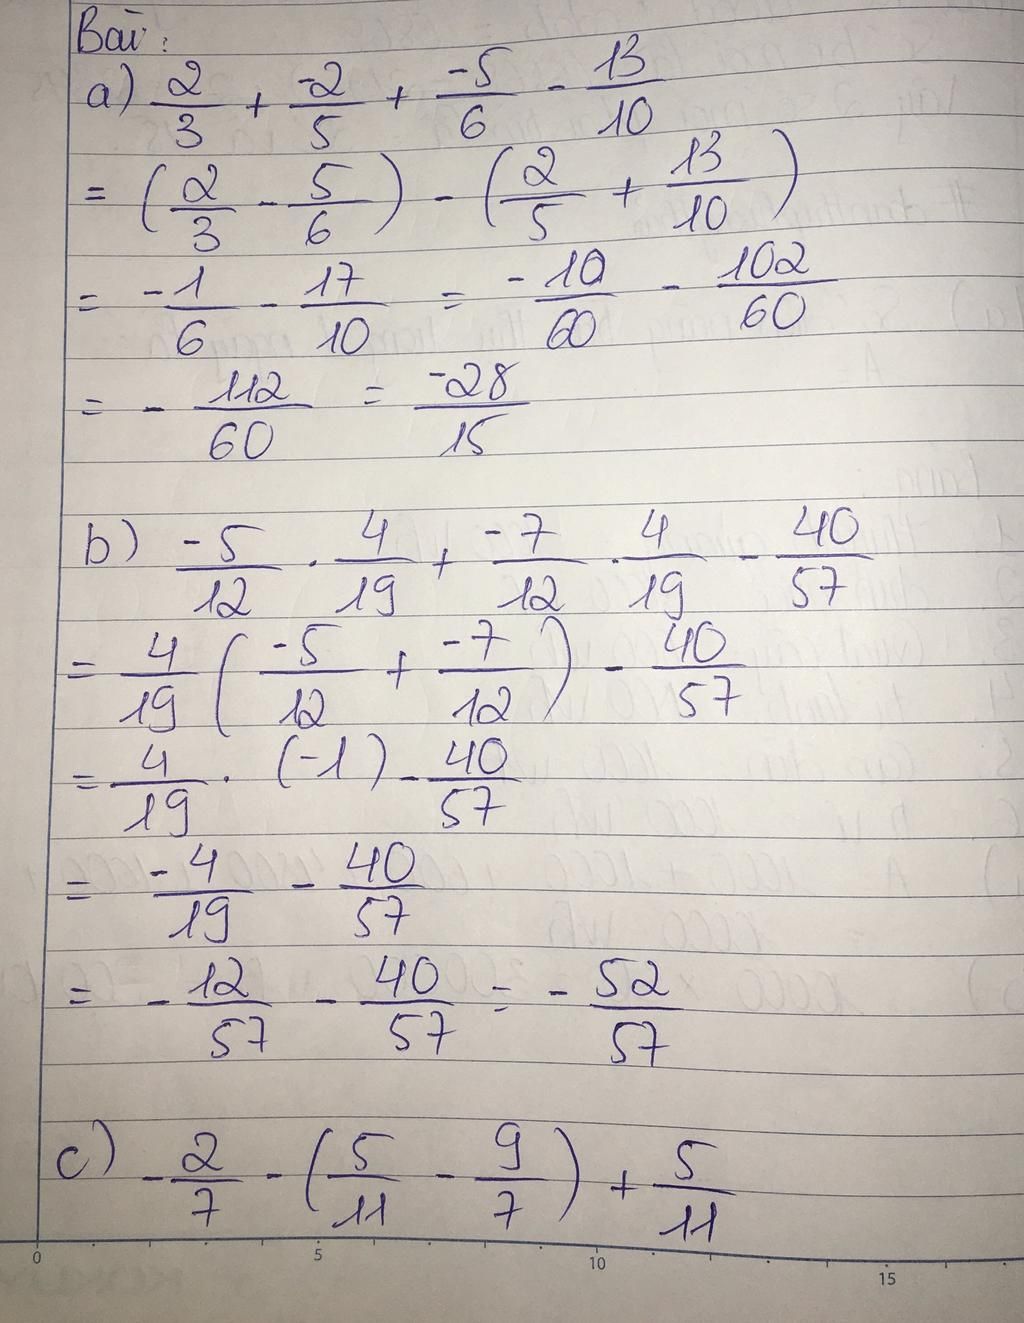 Bài:
a) 2/3 + -2/5 + -5/6 - 13/10
= (2/3 - 5/6) - (2/5 + 13/10)
= -1/6 - 17/10 = -10/60 - 102/60
= - 112/60 = -28/15
b) -5/12 . 4/19 + -7/12 . 4/19 - 40/57
= 4/19 (-5/12 + -7/12) - 40/57
= 4/19 . (-1) - 40/57
= -4/19 - 40/57
= - 12/57 - 40/57 = - 52/57
c) - 2/7 - (5/11 - 9/7) + 5/11
0 5 10 15